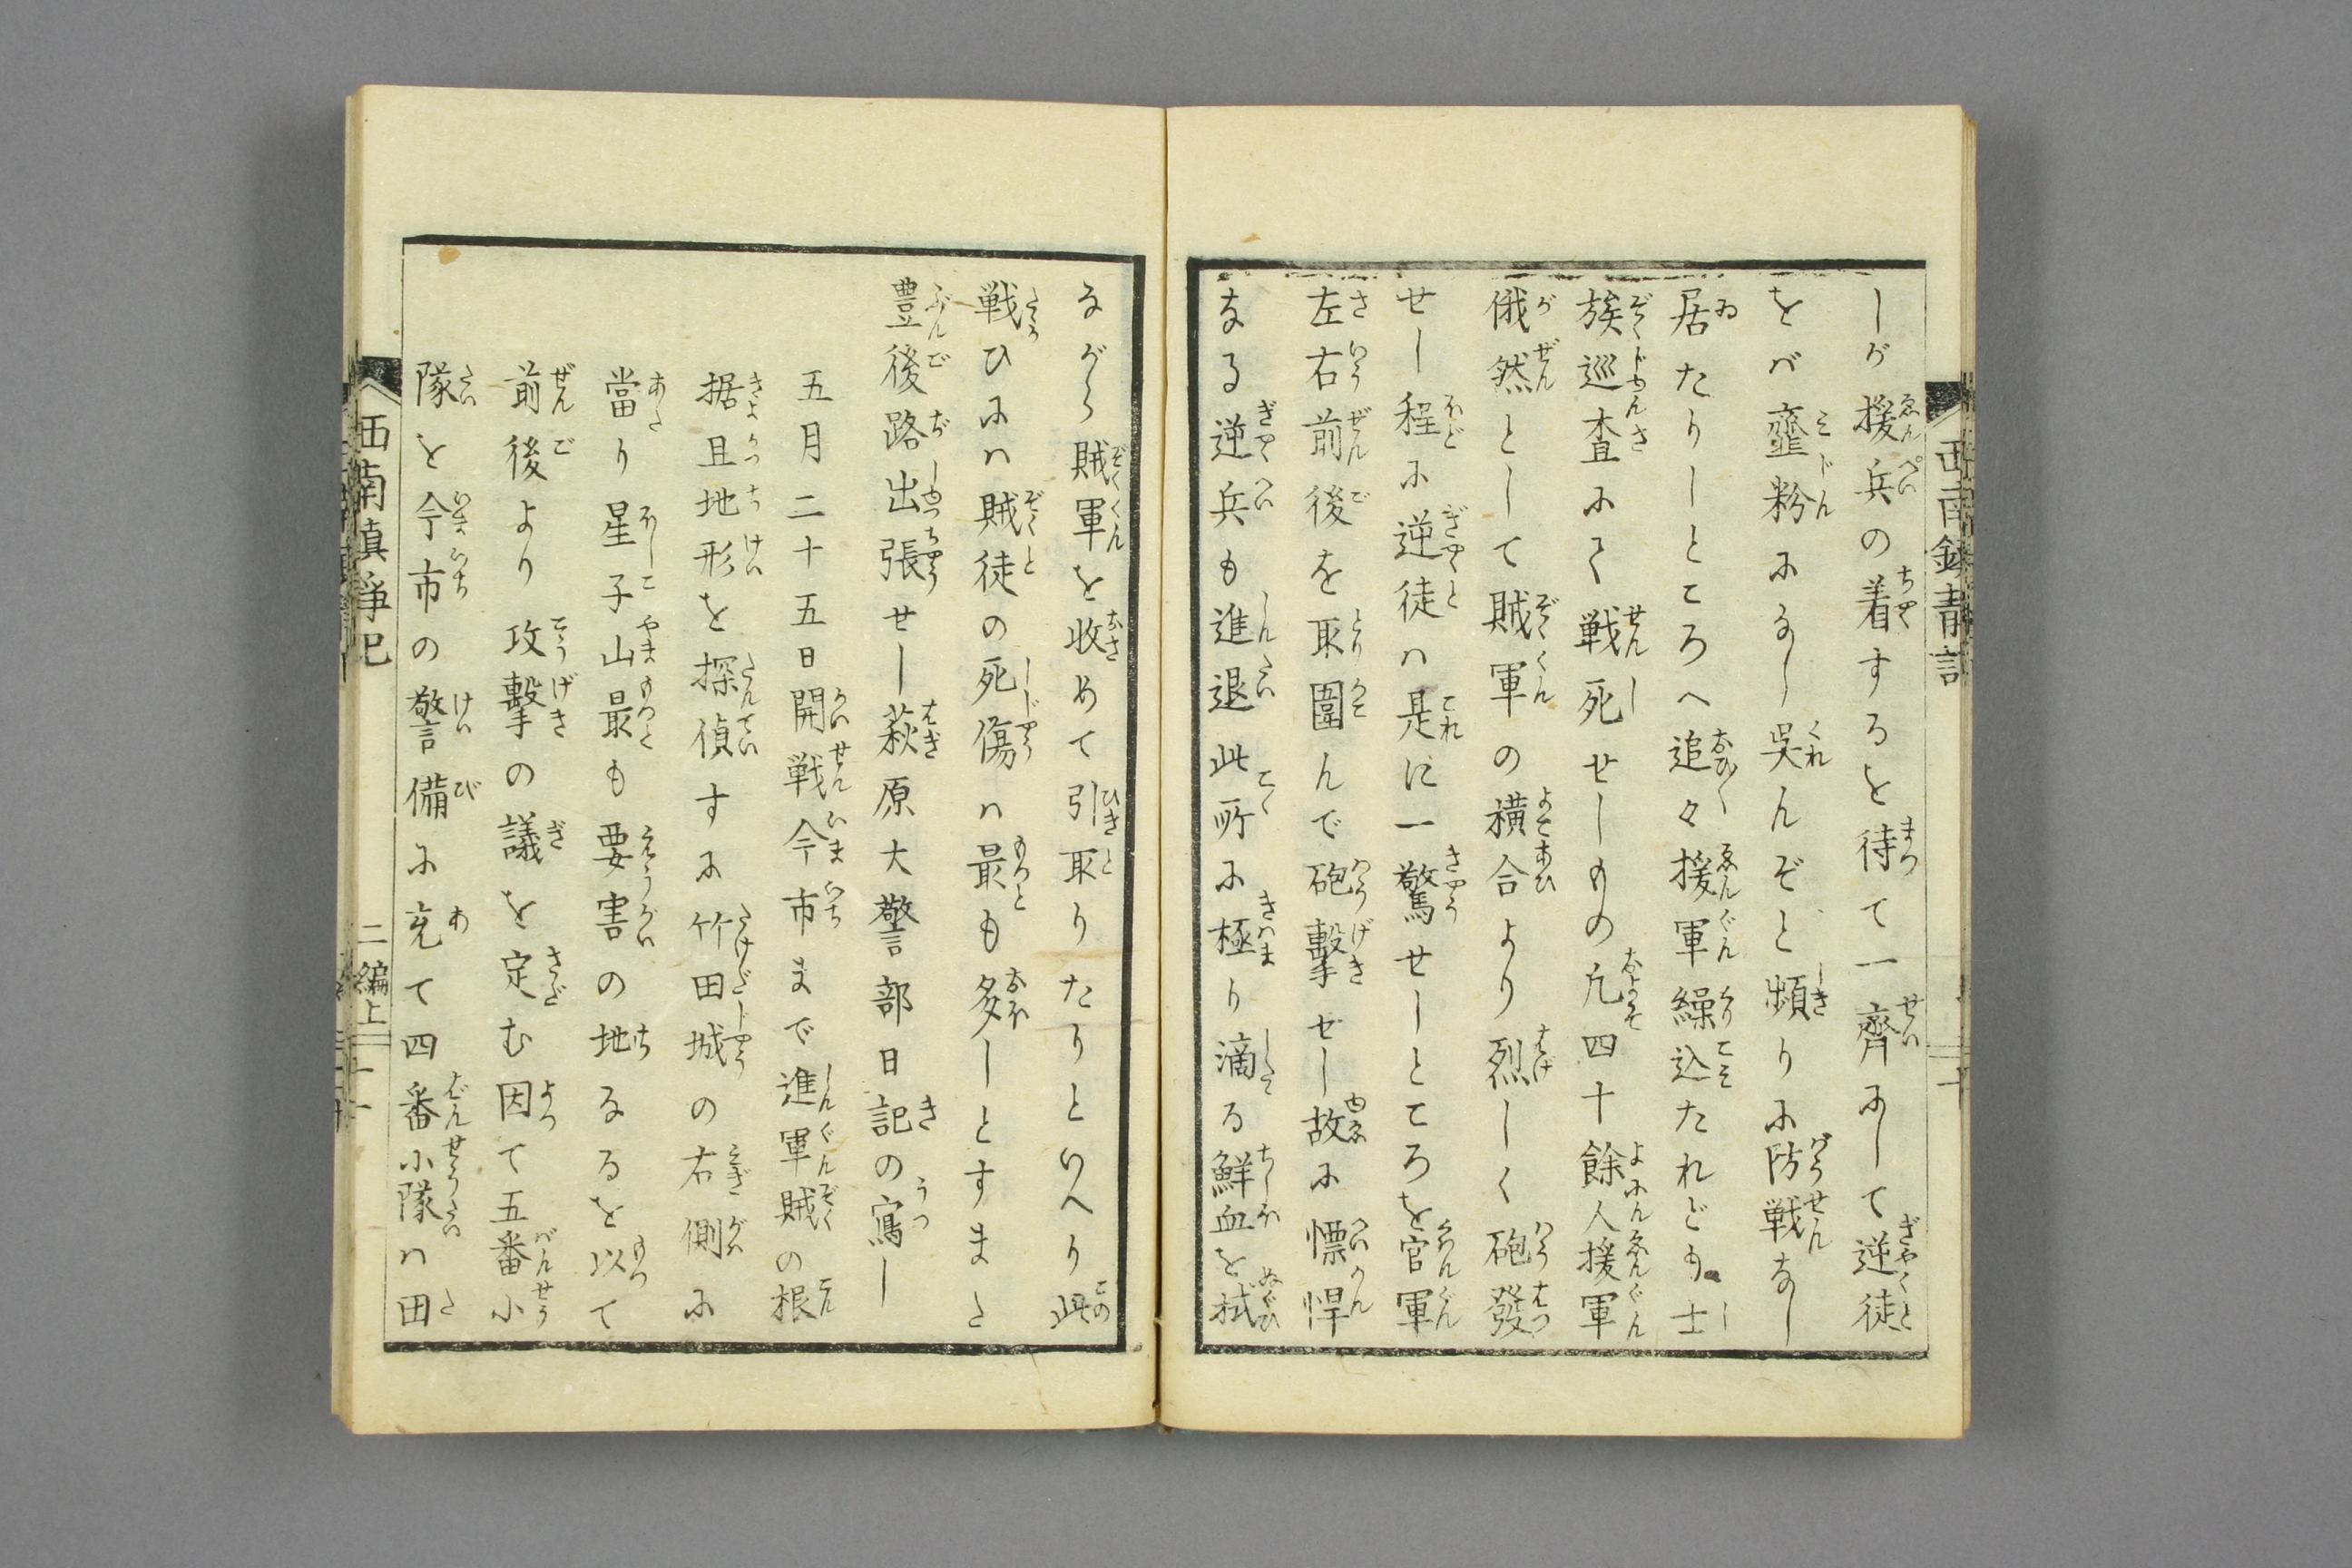 しが援兵の着するを待て一齊にして逆徒
をバ韲粉になし呉んぞと頻りに防戦なし
居たりしところへ追々援軍繰込たれども士
族巡査にて戦死せしもの凡四十餘人援軍
俄然として賊軍の横合より烈しく砲發
せし程に逆徒ハ是に一驚せしところを官軍
左右前後を取圍んで砲擊せし故に慓悍
なる逆兵も進退此所に極り滴る鮮血を拭
ながら賊軍を收めて引取りたりといへり此
戦ひにハ賊徒の死傷ハ最も多しとすまた
豊後路出張せし萩原大警部日記の寫し
五月二十五日開戦今市まで進軍賊の根
据且地形を探偵すに竹田城の右側に
當り星子山最も要害の地なるを以て
前後より攻擊の議を定む因て五番小
隊を今市の警備に充て四番小隊ハ田
西南鎮靜記
二編上
十一